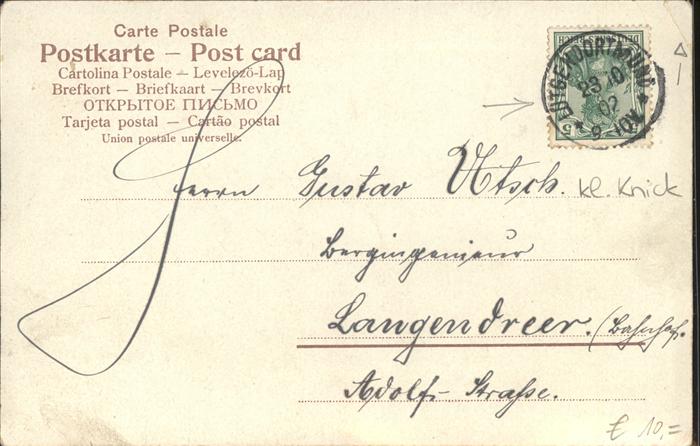 Carte Postale
Postkarte — Post card
Cartolina Postale — Levelező-Lap
Brefkort — Briefkaart — Brevkort
ОТКРЫТОЕ ПИСЬМО
Tarjeta postal — Cartão postal
Union postale universelle.
DEUTSCHES REICH
5 5
LÜTGENDORTMUND
23 10
02
9-10V.
Herrn Gustav Utsch.
kl. Knick
Bergingenieur
Langendreer. (Bahnhof.
Adolf-Strasse.
€ 10,=